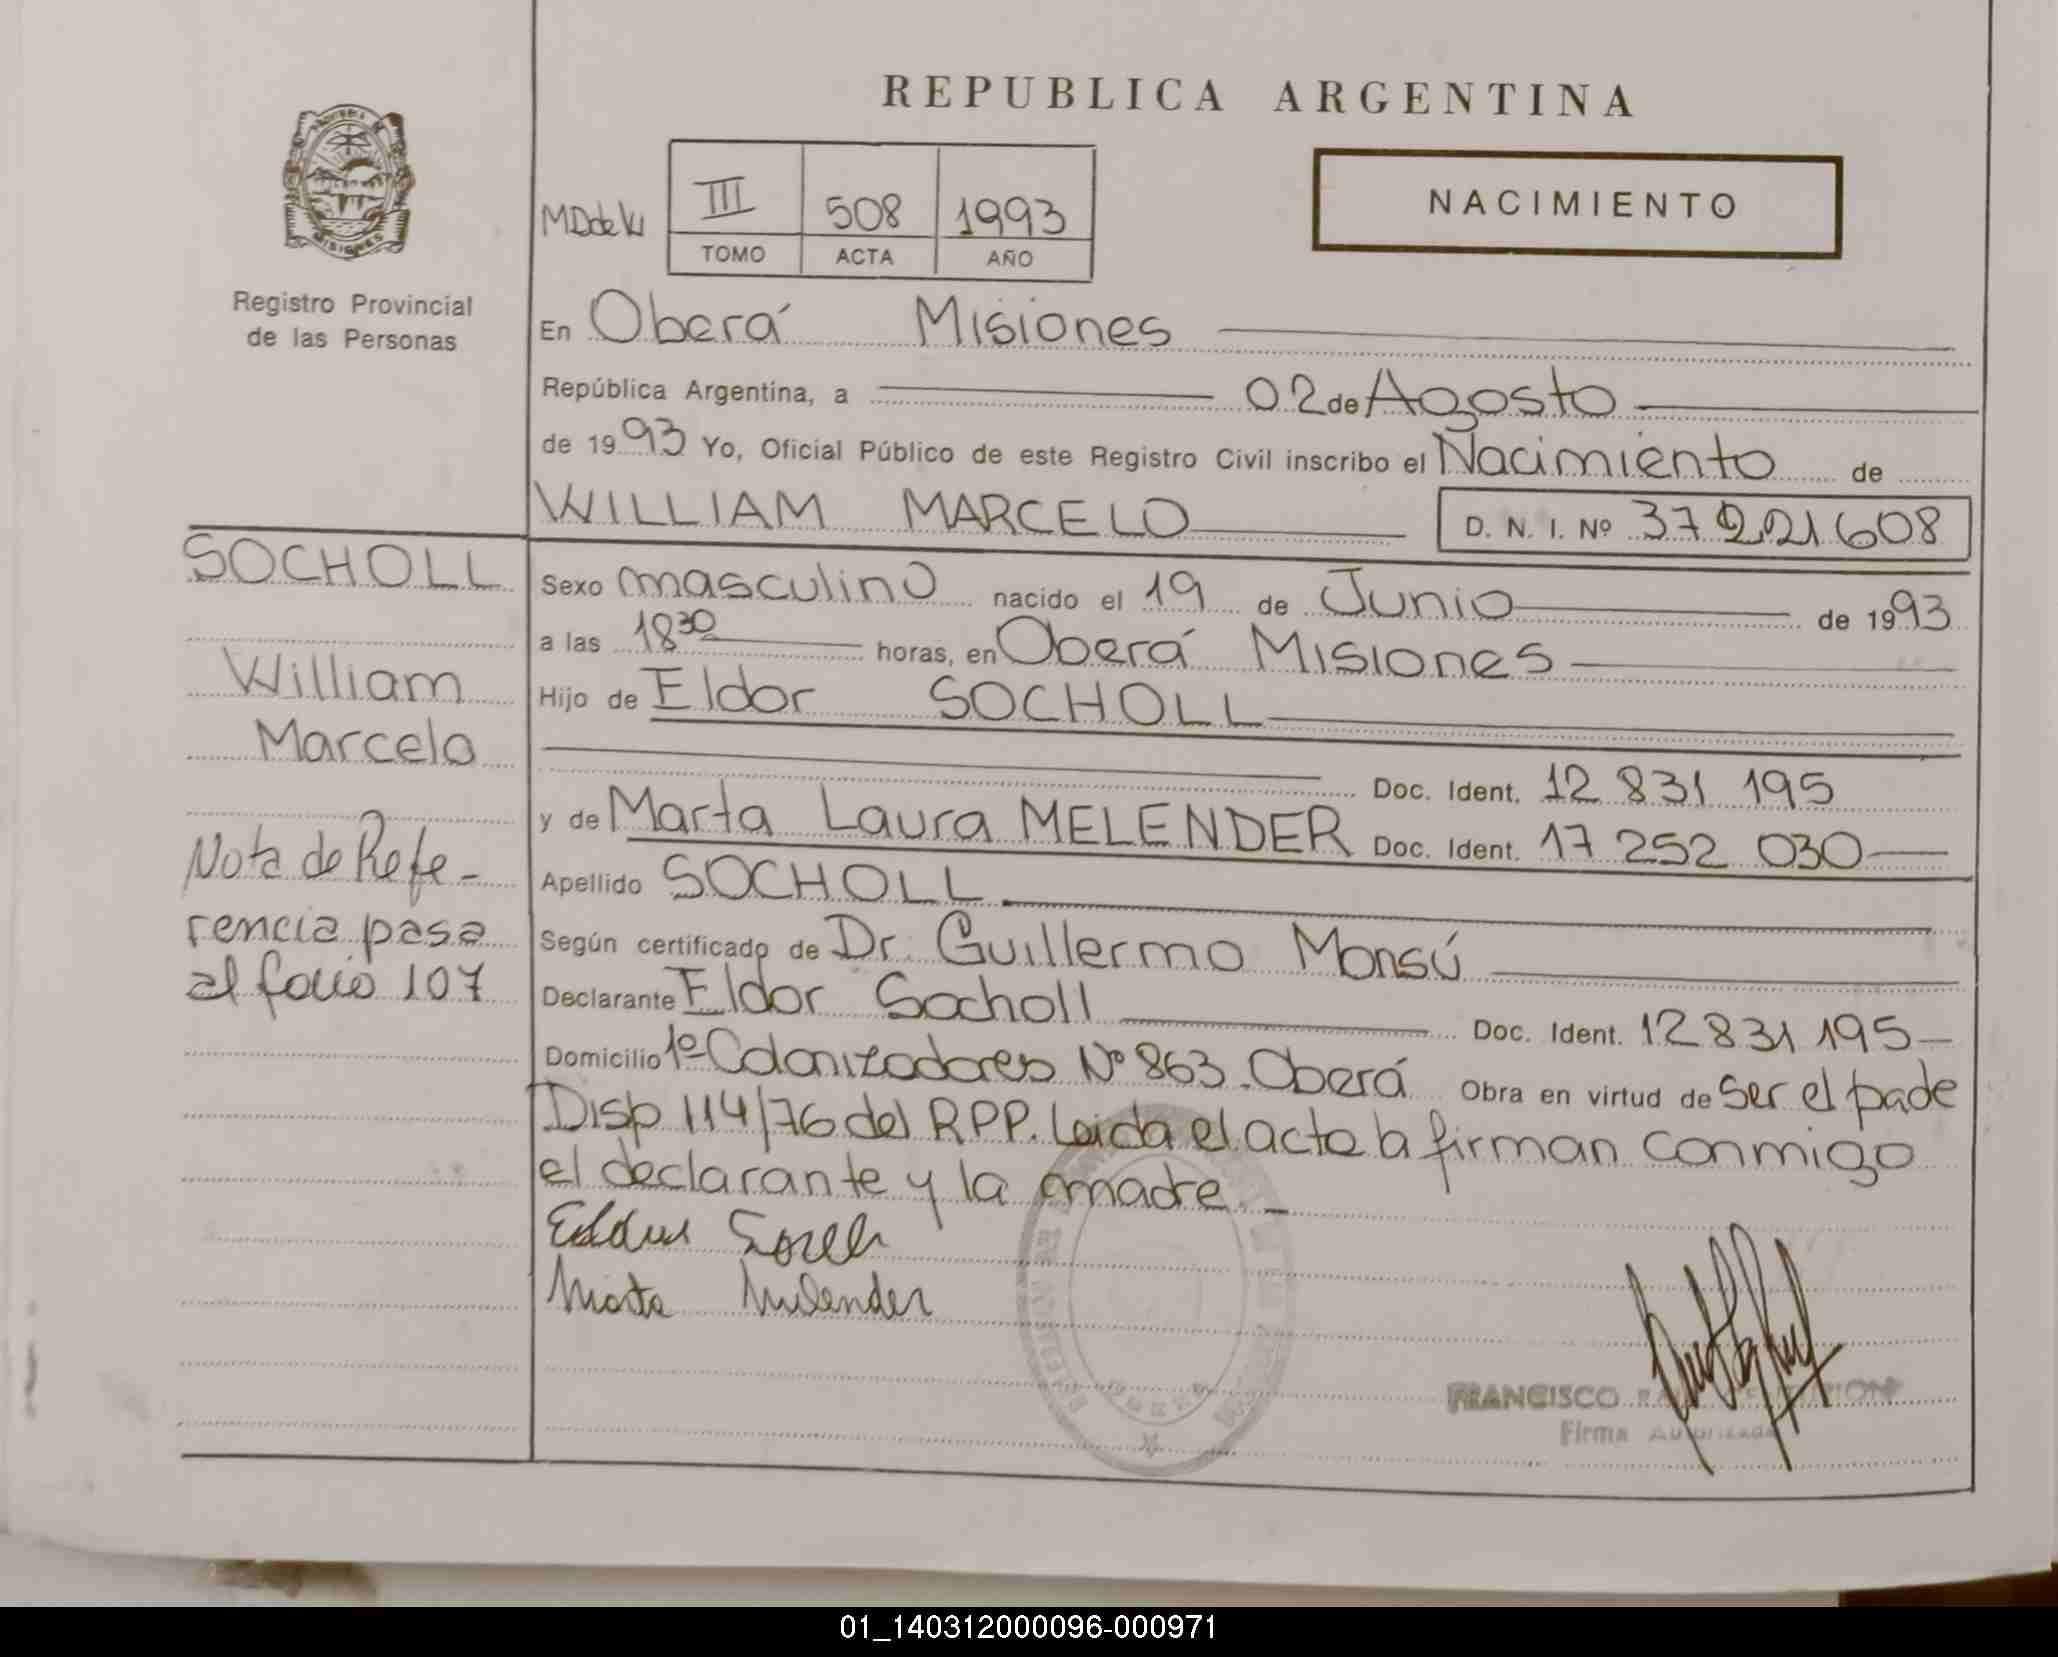 REPUBLICA ARGENTINA
MISIONES
Registro Provincial
de las Personas
III 508 1993
TOMO ACTA AÑO
NACIMIENTO
En Oberá Misiones
República Argentina, a 02 de Agosto
de 1993 Yo, Oficial Público de este Registro Civil inscribo el Nacimiento de
WILLIAM MARCELO D. N. I. Nº 37221608
SOCHOLL
William
Marcelo
Nota de Refe-
rencia pasa
al folio 107
Sexo masculino nacido el 19 de Junio de 1993
a las 18 30 horas, en Oberá Misiones
Hijo de Eldor SOCHOLL
Doc. Ident. 12 831 195
y de Marta Laura MELENDER Doc. Ident. 17 252 030
Apellido SOCHOLL
Según certificado de Dr. Guillermo Monsú
Declarante Eldor Socholl Doc. Ident. 12 831 195
Domicilio 1º Colonizadores Nº 863. Oberá Obra en virtud de ser el pade
Disp 114/76 del RPP. Leida el acta la firman conmigo
el declarante y la madre.-
Marta Melender
FRANCISCO
Firma Autorizada
01_140312000096-000971